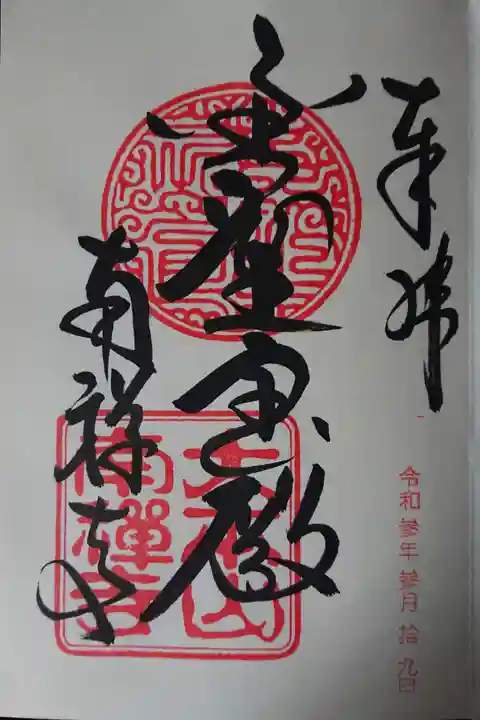 奉拝
令和参年参月拾九日
金剛王宝殿
南禅寺
南禪寺